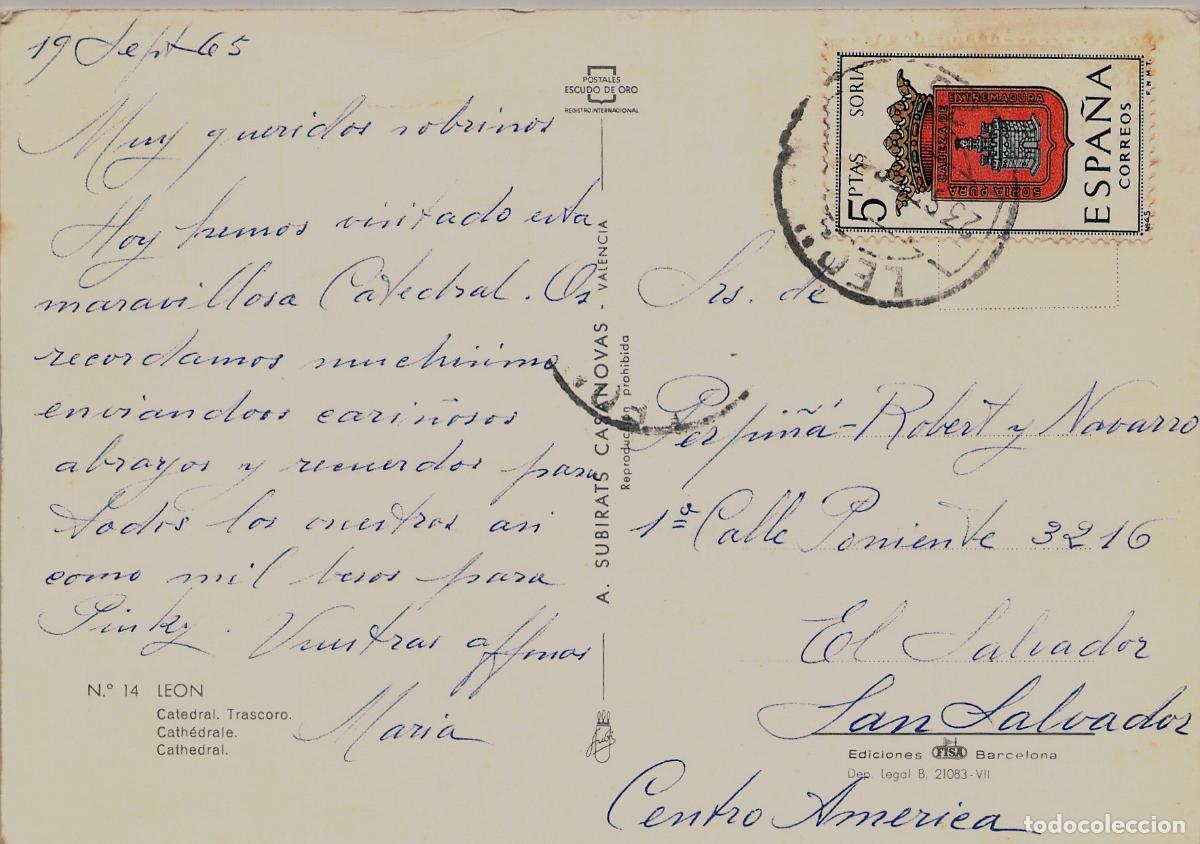 19 Sept 65
Muy queridos sobrinos
Hoy hemos visitado esta
maravillosa Catedral. Os
recordamos muchisimo
enviandoos cariñosos
abrazos y recuerdos para
todos los nuestros asi
como mil besos para
Pinky. Vuestras
Maria
N.º 14 LEON
Catedral. Trascoro.
Cathédrale.
Cathedral.
POSTALES
ESCUDO DE ORO
REGISTRO INTERNACIONAL
A. SUBIRATS CASANOVAS - VALENCIA
Reproducción prohibida
5 PTAS SORIA
SORIA PURA CABEZA DE EXTREMADURA
ESPAÑA
CORREOS
F.N.M.T.
Nº 45
LEO
23 S
Srs. de
Perpiñá-Robert y Navarro
1ª Calle Poniente 3216
El Salvador
San Salvador
Centro America
Ediciones FISA Barcelona
Dep. Legal B. 21083-VII
todocoleccion